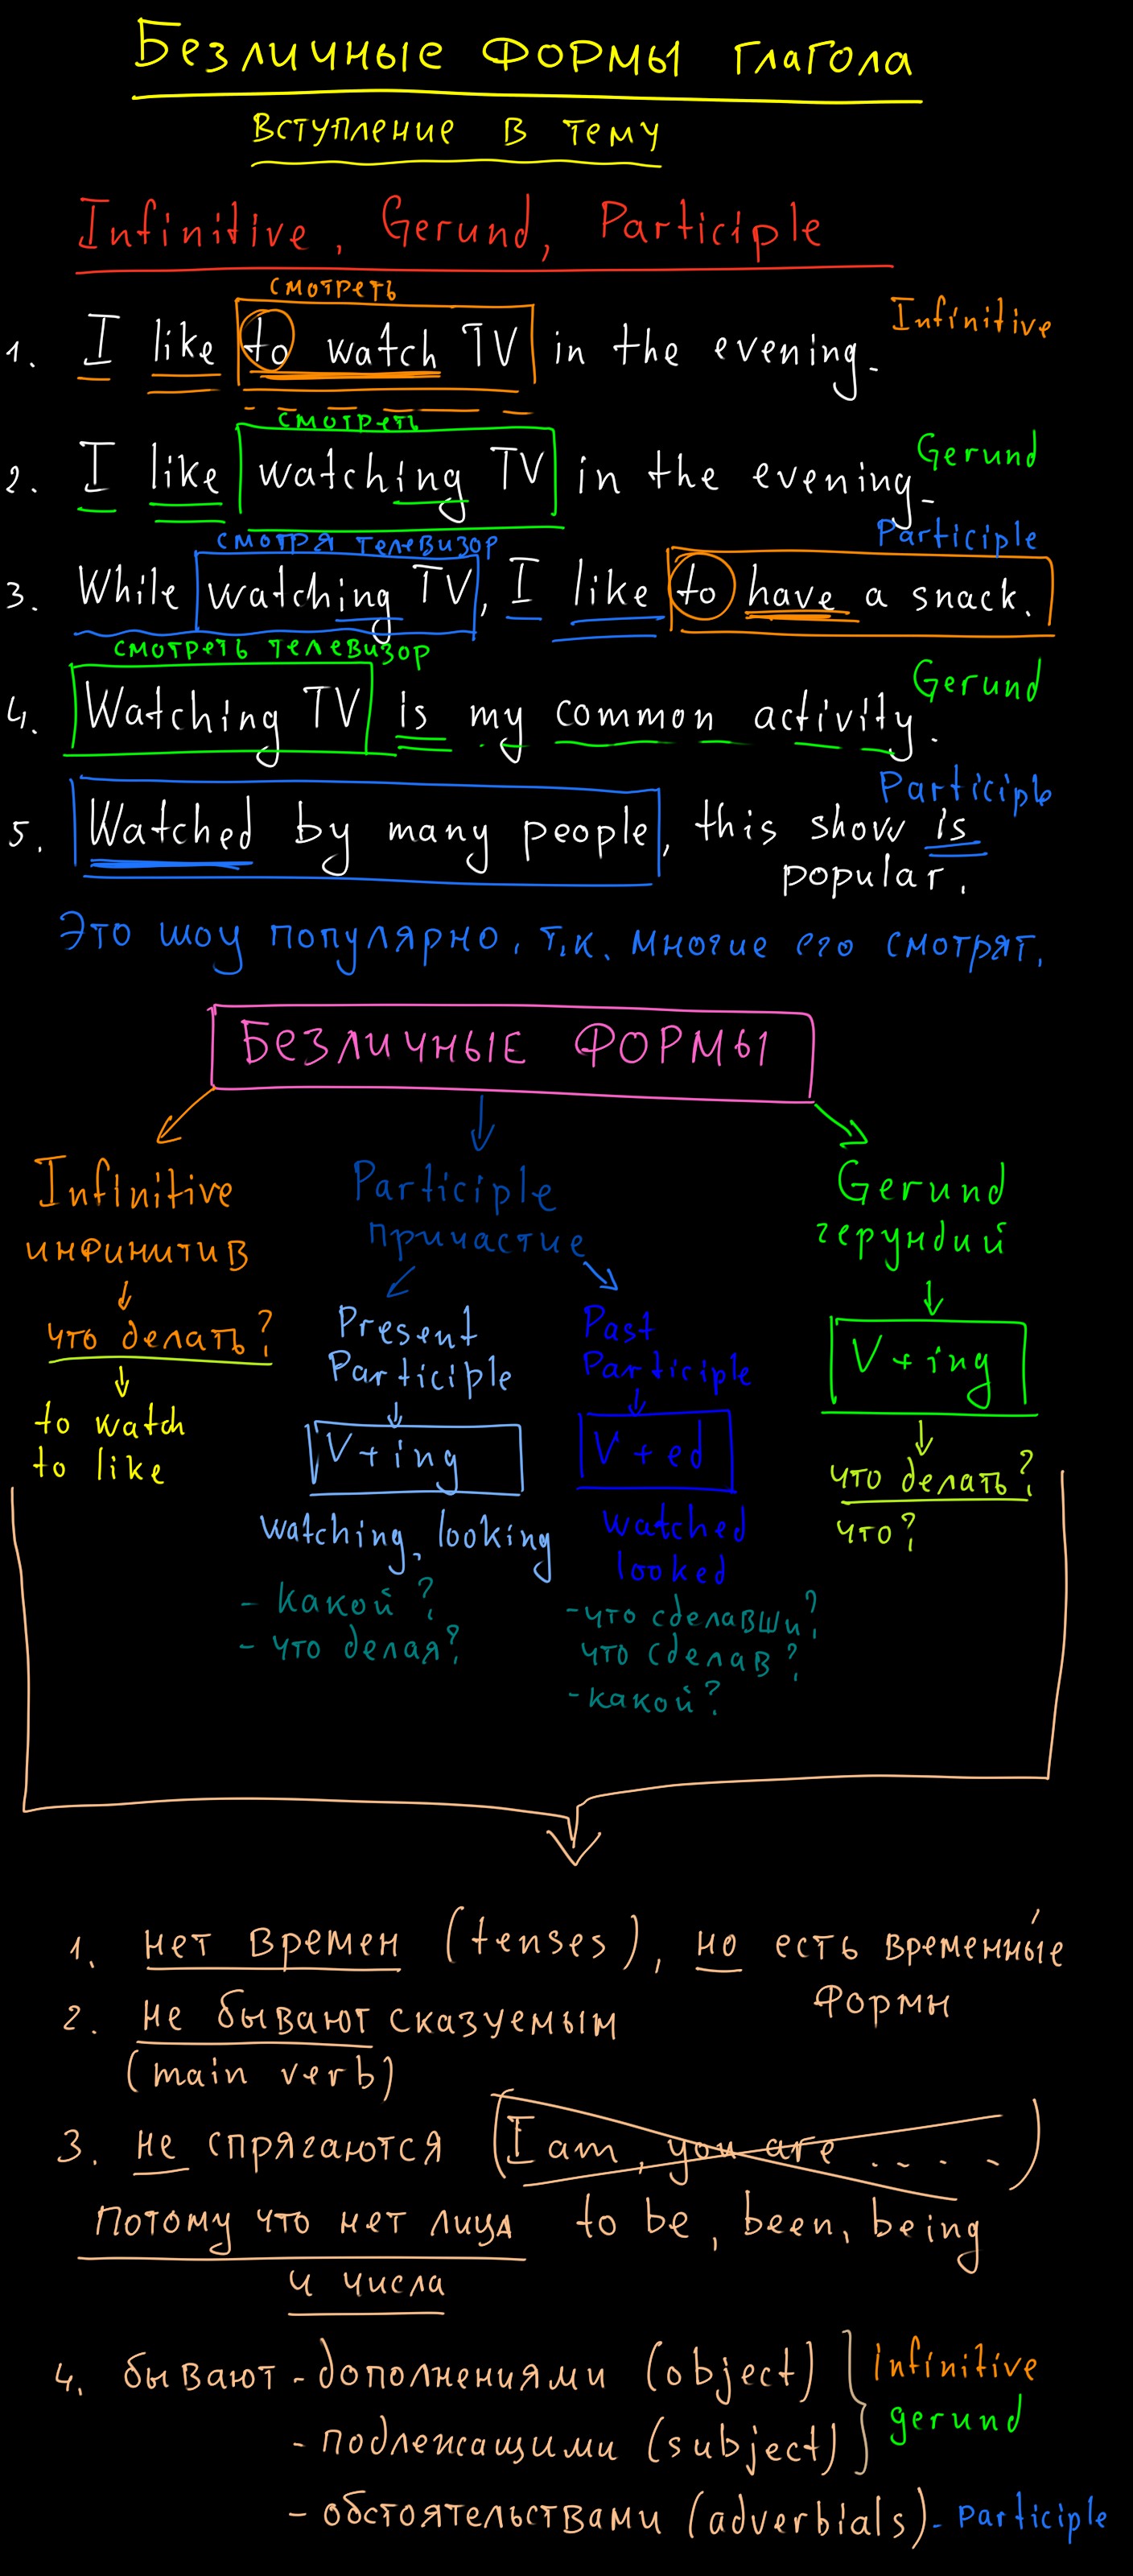 Безличные формы глагола
Вступление в тему
Infinitive, Gerund, Participle
смотреть
1. I like to watch TV in the evening. Infinitive
смотреть
2. I like watching TV in the evening. Gerund
смотря телевизор Participle
3. While watching TV, I like to have a snack.
смотреть телевизор
4. Watching TV is my common activity. Gerund
Participle
5. Watched by many people, this show is
popular.
Это шоу популярно, т.к. многие его смотрят.
БЕЗЛИЧНЫЕ ФОРМЫ
Infinitive
инфинитив
что делать?
to watch
to like
Participle
причастие
Present
Participle
V + ing
watching, looking
- какой?
- что делая?
Past
Participle
V + ed
watched
looked
- что сделавши?
что сделав?
- какой?
Gerund
герундий
V + ing
что делать?
что?
1. нет времен (tenses), но есть временны́е
формы
2. не бывают сказуемым
(main verb)
3. не спрягаются (I am, you are ....)
потому что нет лица to be, been, being
и числа
4. бывают - дополнениями (object) Infinitive
gerund
- подлежащими (subject)
- обстоятельствами (adverbials) - participle